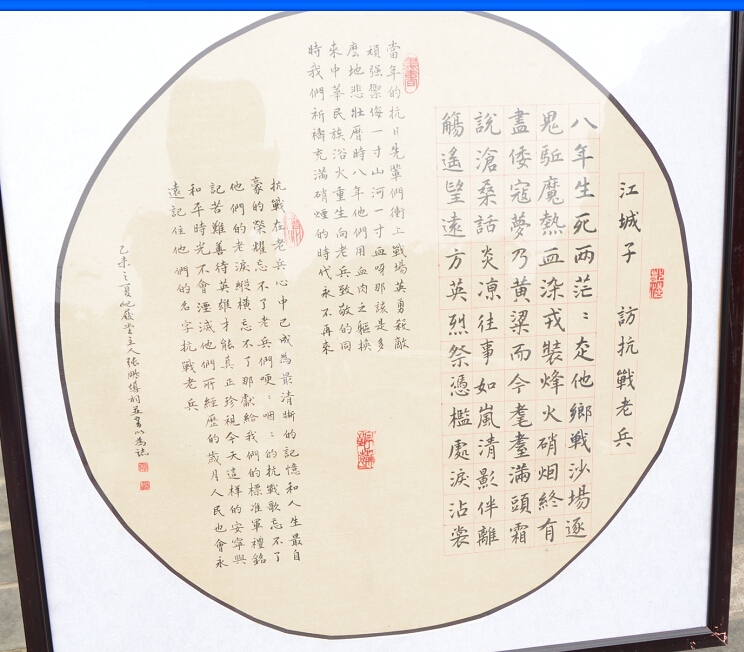 江城子 訪抗戰老兵
八年生死两茫：走他鄉戰沙場逐
鬼駈魔熱血染戎裝烽火硝烟終有
盡倭寇夢乃黃粱而今耄耋滿頭霜
說滄桑話炎凉往事如嵐清影伴離
觴遙望遠方英烈祭憑檻處淚沾裳
當年的抗日先輩們衝上戰場英勇殺敵
頑强禦侮一寸山河一寸血呀那該是多
麽地悲壯曆時八年他們用血肉之軀換
來中華民族浴火重生向老兵致敬的同
時我們祈禱充滿硝煙的時代永不再来
抗戰在老兵心中已成為最清晰的記憶和人生最自
豪的榮耀忘不了老兵們哽：咽：的抗戰歌忘不了
他們的老淚縱橫忘不了那獻給我們的標准軍禮銘
記苦難善待英雄才能真正珍視今天這樣的安寧與
和平時光不會湮滅他們所經歷的歲月人民也會永
遠記住他們的名字抗戰老兵
乙未之夏主人張書以為誌